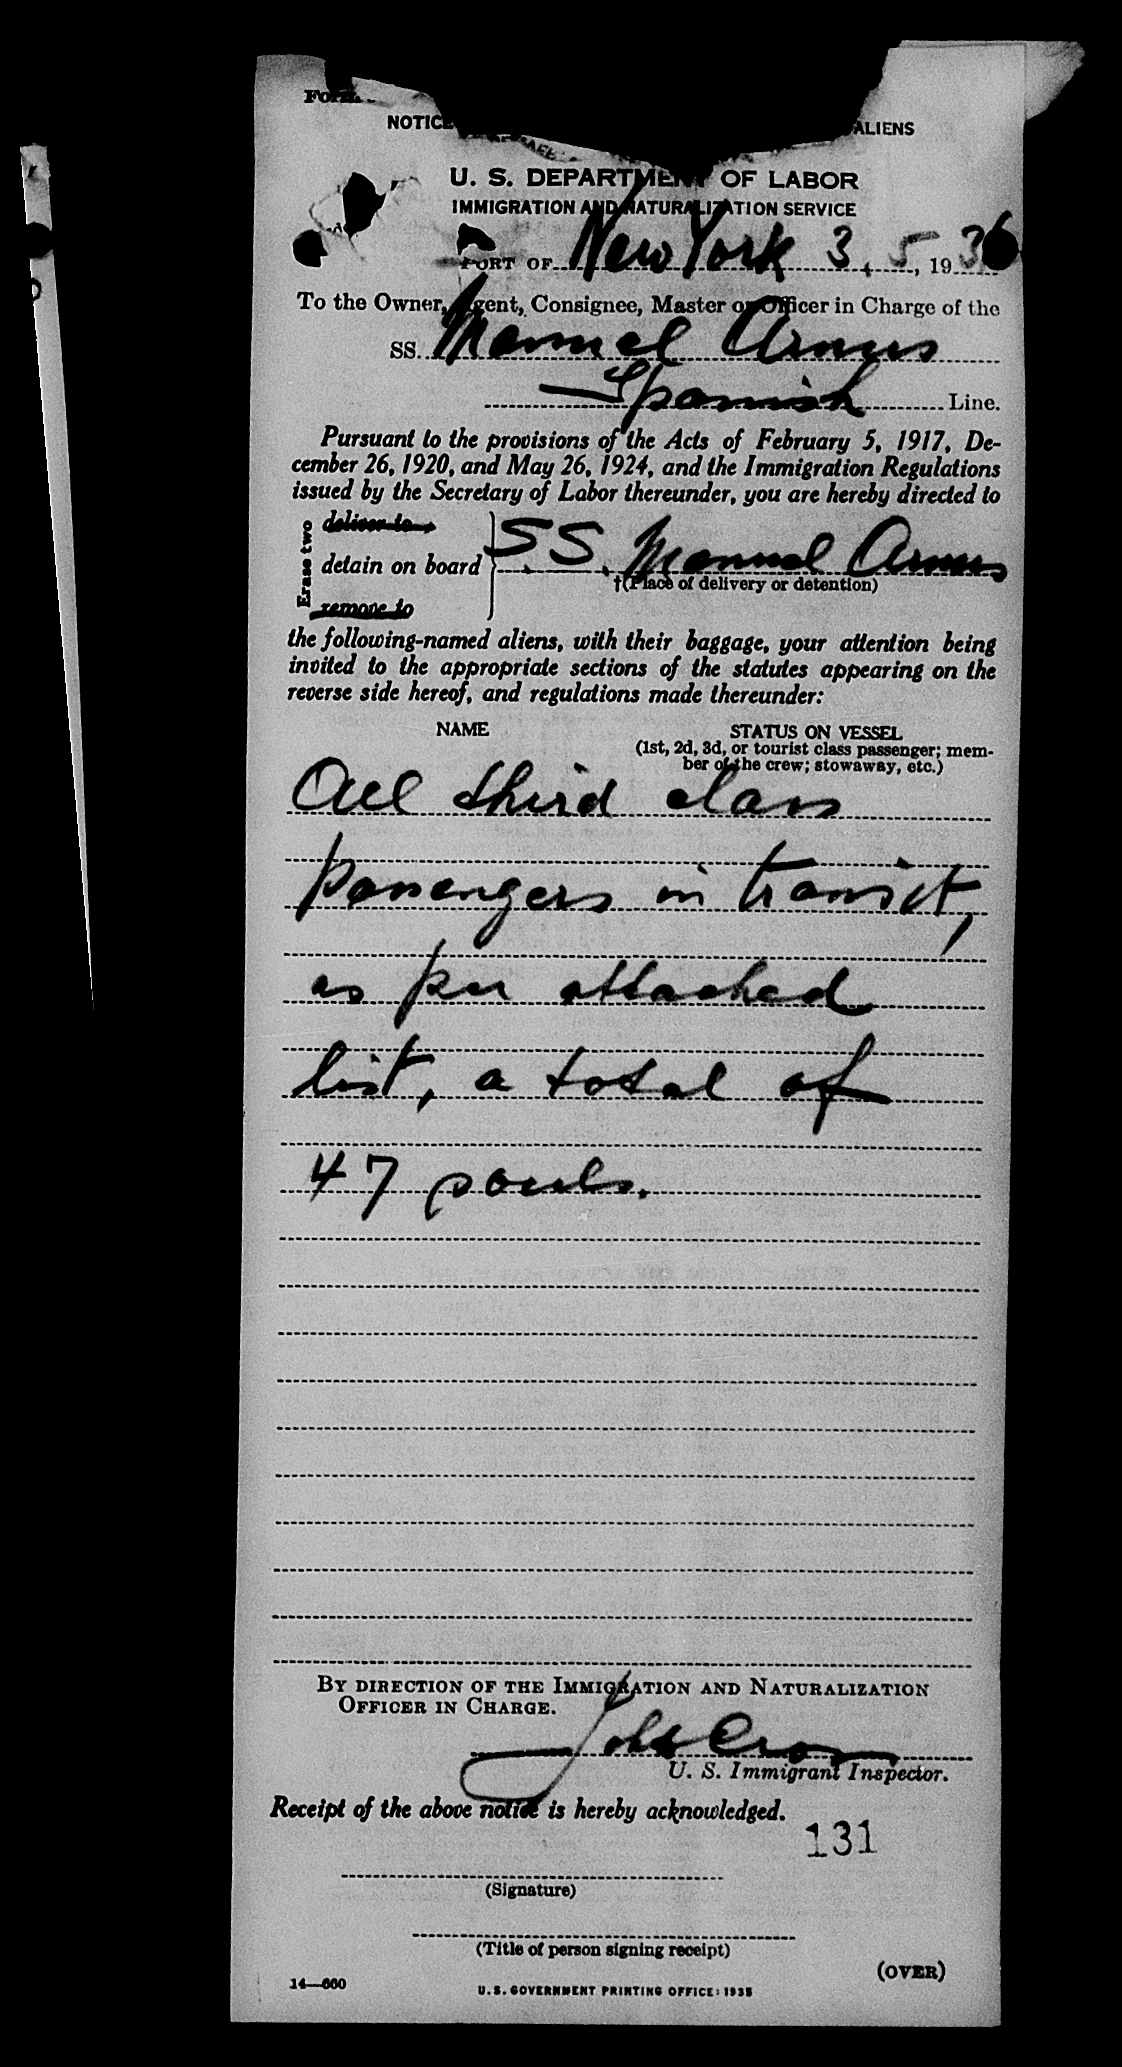 NOTICE
ALIENS
U. S. DEPARTMENT OF LABOR
IMMIGRATION AND NATURALIZATION SERVICE
PORT OF New York 3, 5, 1936
To the Owner, Agent, Consignee, Master or Officer in Charge of the
SS. Manuel Arnus
Spanish Line.
Pursuant to the provisions of the Acts of February 5, 1917, De-
cember 26, 1920, and May 26, 1924, and the Immigration Regulations
issued by the Secretary of Labor thereunder, you are hereby directed to
Erase two
deliver to
detain on board SS. Manuel Arnus
†(Place of delivery or detention)
remove to
the following-named aliens, with their baggage, your attention being
invited to the appropriate sections of the statutes appearing on the
reverse side hereof, and regulations made thereunder:
NAME STATUS ON VESSEL
(1st, 2d, 3d, or tourist class passenger; mem-
ber of the crew; stowaway, etc.)
All third class
passengers in transit,
as per attached
list, a total of
47 souls.
BY DIRECTION OF THE IMMIGRATION AND NATURALIZATION
OFFICER IN CHARGE.
John
U. S. Immigrant Inspector.
Receipt of the above notice is hereby acknowledged.
131
(Signature)
(Title of person signing receipt)
(OVER)
14—660
U. S. GOVERNMENT PRINTING OFFICE: 1935